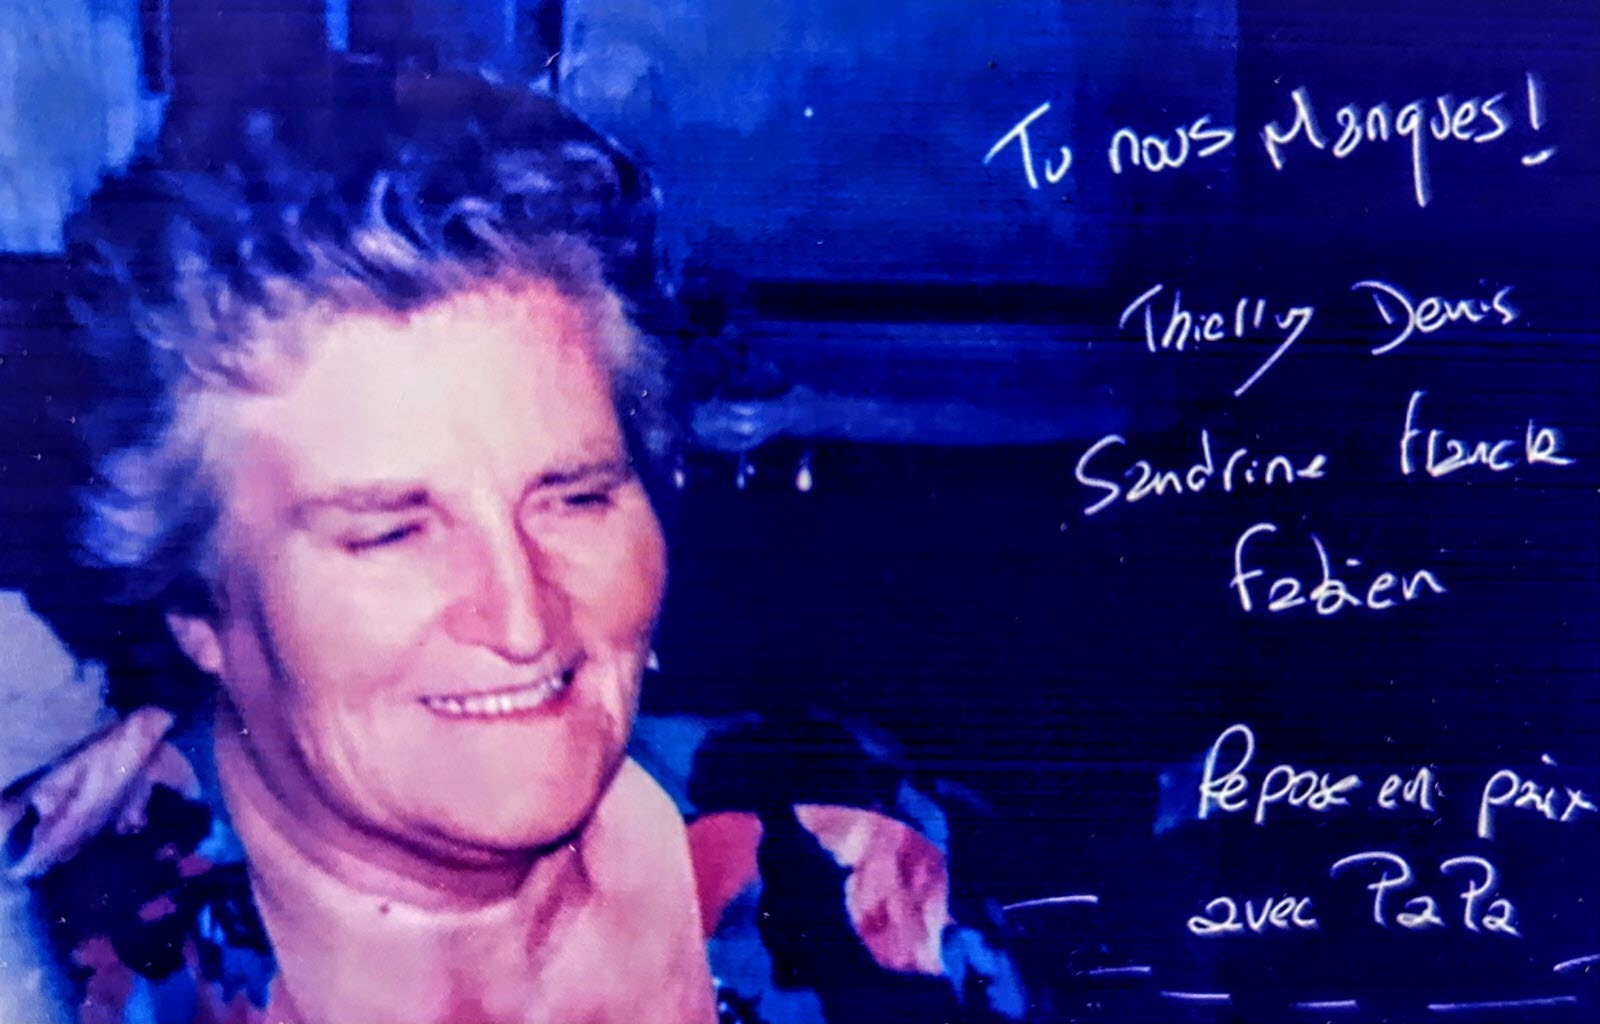 Tu nous Manques!
Thierry Denis
Sandrine Franck
Fabien
Repose en paix
avec PaPa